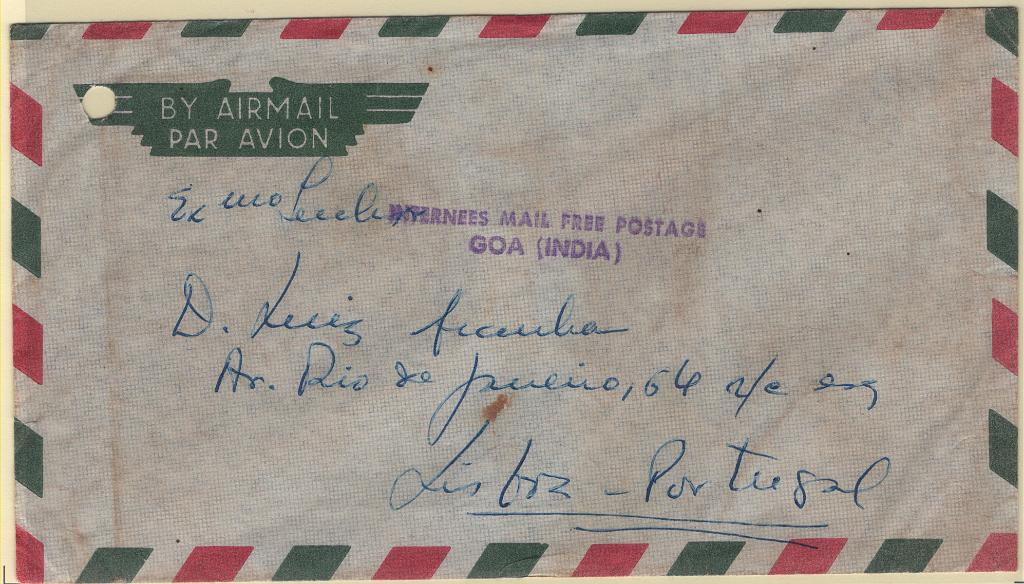 BY AIRMAIL
PAR AVION
Exmo Senhor
INTERNEES MAIL FREE POSTAGE
GOA (INDIA)
D. Luiz da Cunha
Av. Rio de Janeiro, 64 r/c esq
Lisboa - Portugal